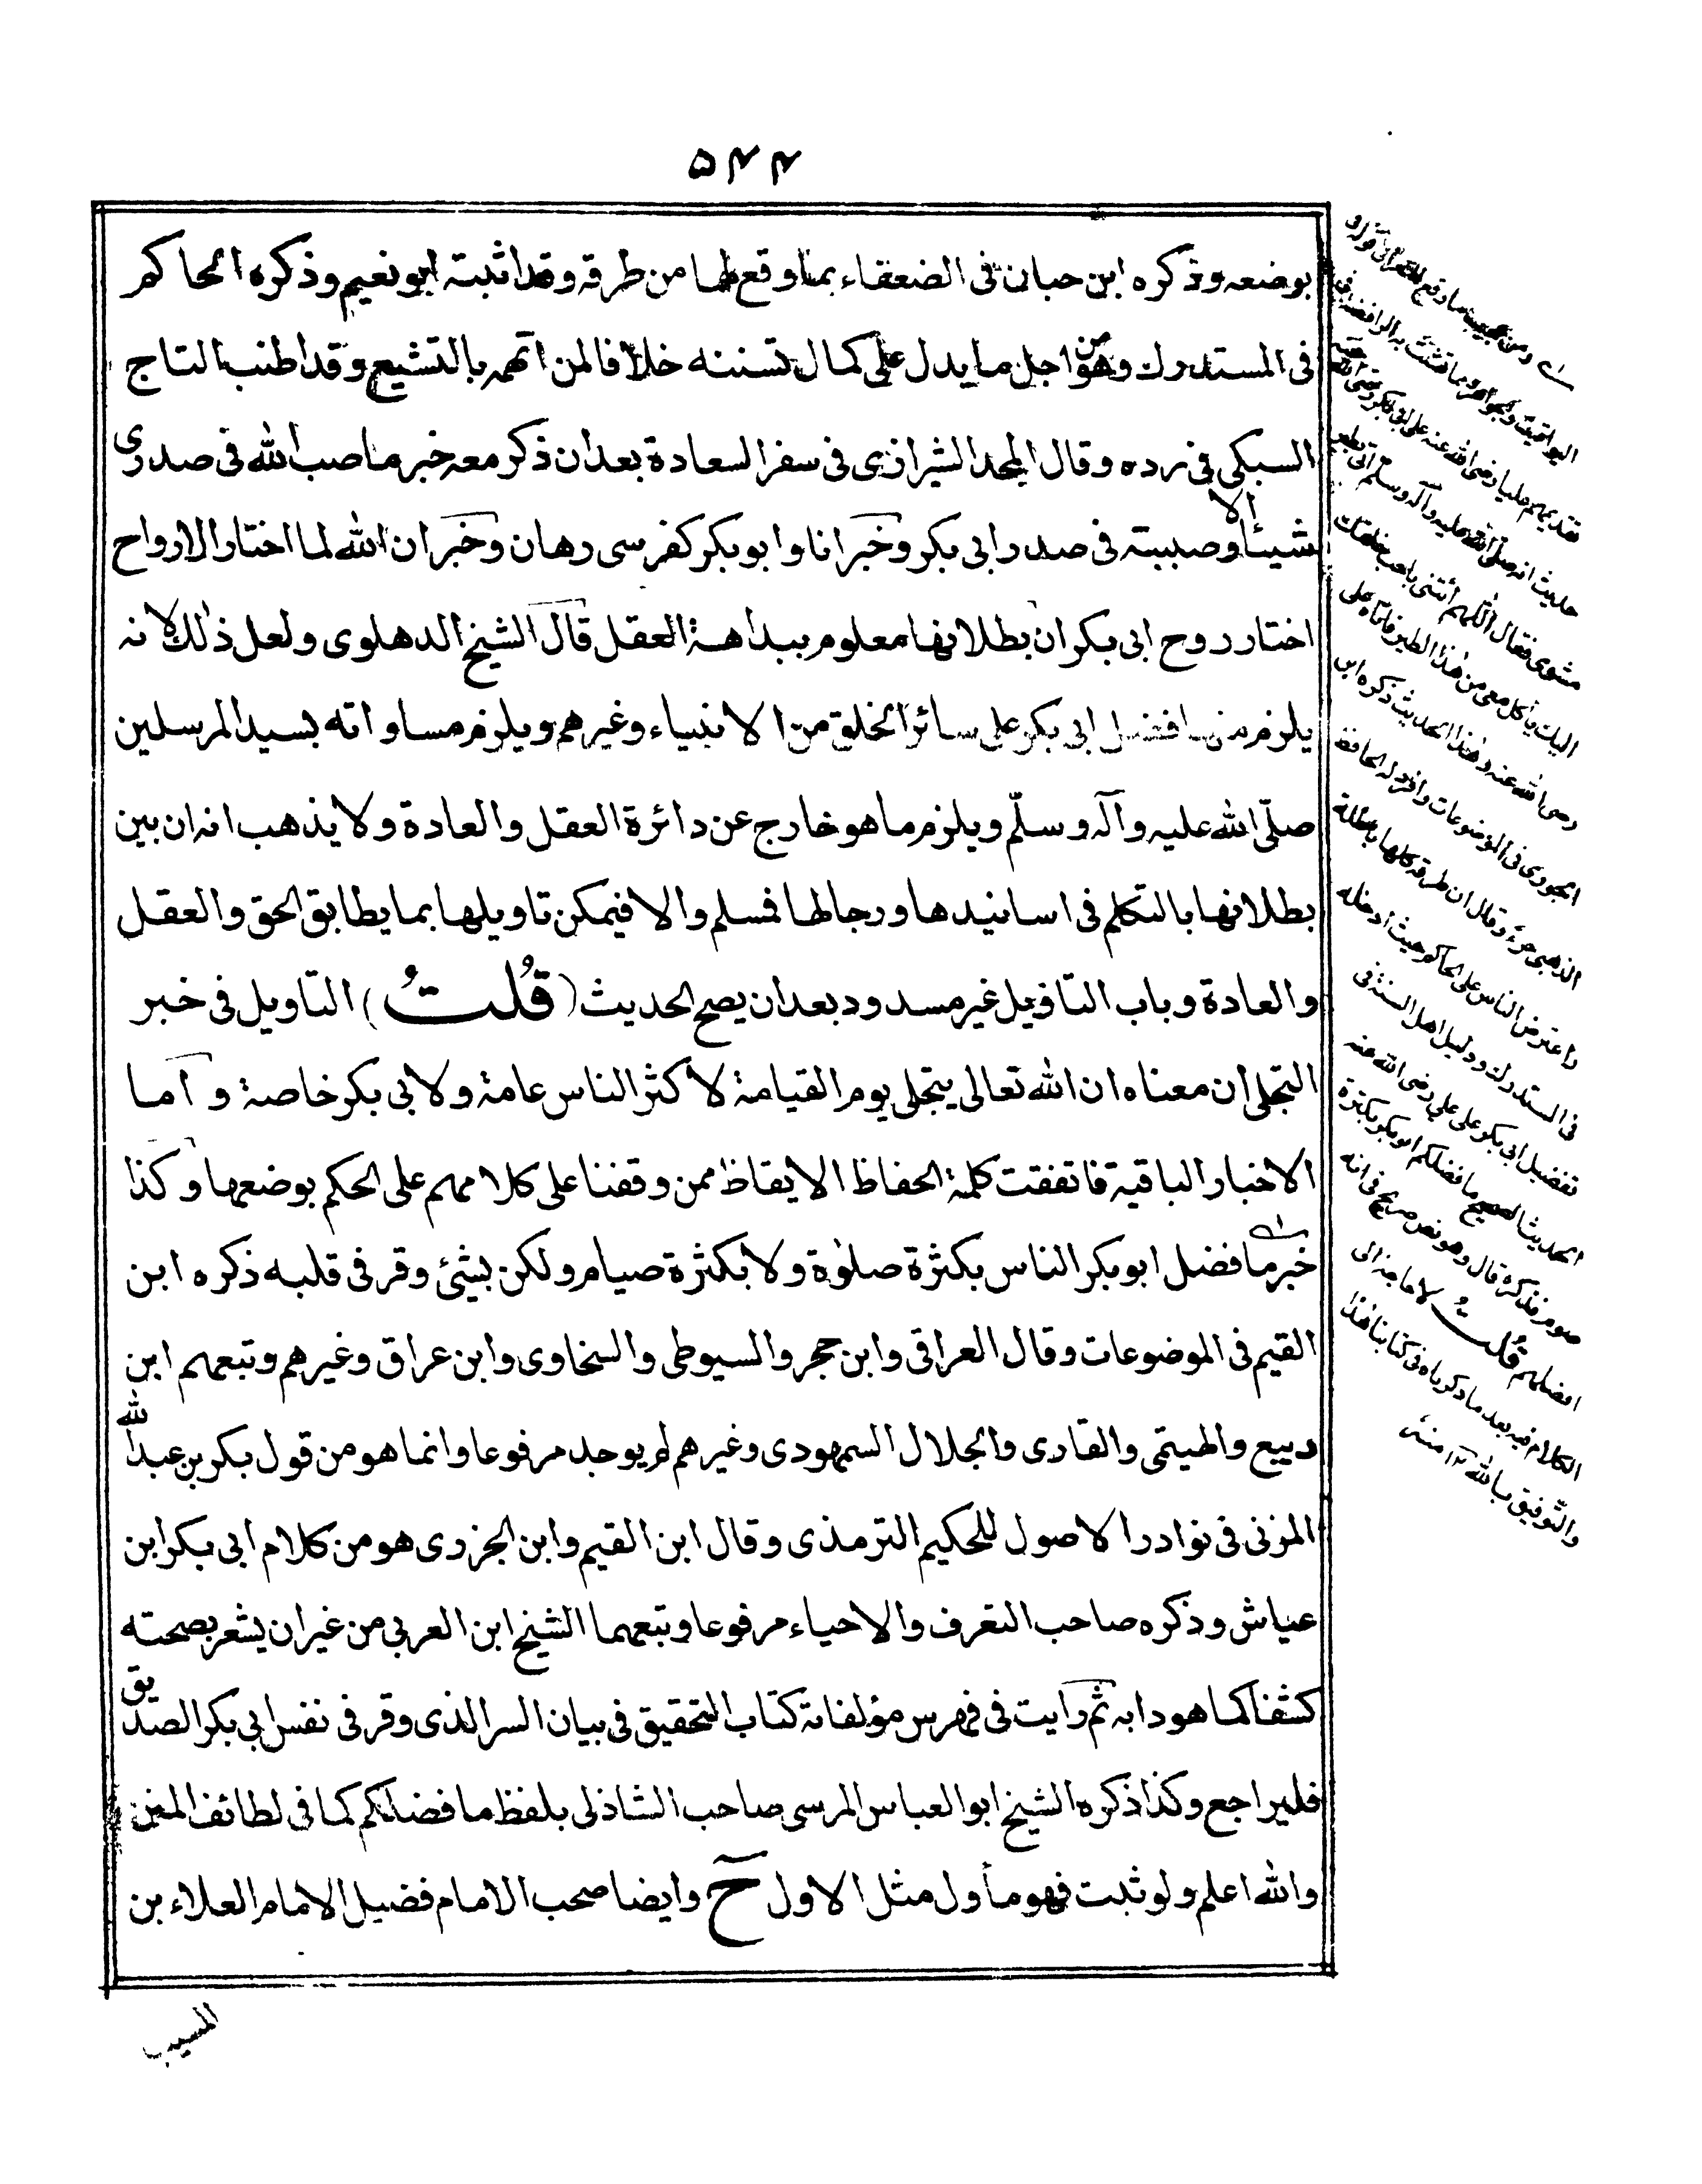 ۵۴۴
بوضعه وذكره ابن حبان فى الضعفاء بما وقع لهما من طرقه وقد اثبته ابو نعيم وذكره الحاكم
فى المستدرك وهو من اجل ما يدل على كمال تسننه خلافا لمن اتهمه بالتشيع وقد اطنب التاج
السبكى فى رده وقال المجد الشيرازى فى سفر السعادة بعد ان ذكر معه خبر ما صب الله فى صدرى
شيئا الا وصببته فى صدر ابى بكر وخبر انا وابو بكر كفرسى رهان وخبر ان الله لما اختار الارواح
اختار روح ابى بكر ان بطلانها معلوم ببداهة العقل قال الشيخ الدهلوى ولعل ذلك لانه
يلزم منها فضل ابى بكر على سائر الخلق من الانبياء وغيرهم ويلزم مساواته بسيد المرسلين
صلّى الله عليه وآله وسلّم ويلزم ما هو خارج عن دائرة العقل والعادة ولا يذهب انه ان بين
بطلانها بالتكلم فى اسانيدها ورجالها فمسلم والا فيمكن تاويلها بما يطابق الحق والعقل
والعادة وباب التاويل غير مسدود بعد ان يصح الحديث (قُلتُ) التاويل فى خبر
التجلى ان معناه ان الله تعالى يتجلى يوم القيامة لاكثر الناس عامة ولابى بكر خاصة واما
الاخبار الباقية فاتفقت كلمة الحفاظ الايقاظ ممن وقفنا على كلامهم على الحكم بوضعها وكذا
خبر ما فضل ابو بكر الناس بكثرة صلوة ولا بكثرة صيام ولكن بشئ وقر فى قلبه ذكره ابن
القيم فى الموضوعات وقال العراقى وابن حجر والسيوطى والسخاوى وابن عراق وغيرهم وتبعهم ابن
ديبع والهيتمى والقارى والجلال السمهودى وغيرهم لم يوجد مرفوعا وانما هو من قول بكر بن عبد الله
المزنى فى نوادر الاصول للحكيم الترمذى وقال ابن القيم وابن الجزرى هو من كلام ابى بكر ابن
عياش وذكره صاحب التعرف والاحياء مرفوعا وتبعهما الشيخ ابن العربى من غير ان يشعر بصحته
كشفا كما هو دابه ثم رايت فى فهرس مؤلفاته كتاب التحقيق فى بيان السر الذى وقر فى نفس ابى بكر الصديق
فليراجع وكذا ذكره الشيخ ابو العباس المرسى صاحب الشاذلى بلفظ ما فضلكم كما فى لطائف المنن
والله اعلم ولو ثبت فهو مأول مثل الاول ح وايضا صحب الامام فضيل الامام العلاء بن
المسيب
ومن عجيب ما وقع للشعرانى قوله
اليواقيت والجواهر ومما تشبثت به الرافضة فى
تقديمهم عليا رضى الله عنه على ابى بكر رضى الله عنه
حديث انه صلى الله عليه وآله وسلم اتى بطير
مشوى فقال اللهم ائتنى باحب خلقك
اليك ياكل معى من هذا الطير فاتاه على
رضى الله عنه وهذا الحديث ذكره ابن
الجوزى فى الموضوعات وافرد له الحافظ
الذهبى جزء وقال ان طرقه كلها باطلة
واعترض الناس على الحاكم حيث ادخله
فى المستدرك ودليل اهل السنة فى
تفضيل ابى بكر على على رضى الله عنه
الحديث الصحيح ما فضلكم ابو بكر بكثرة
صوم فذكره قال وهو نص صريح فى انه
افضلهم قُلتُ لا حاجة الى
الكلام فيه بعد ما ذكرناه فى كتابنا هذا
والتوفيق بالله ١٢ منه